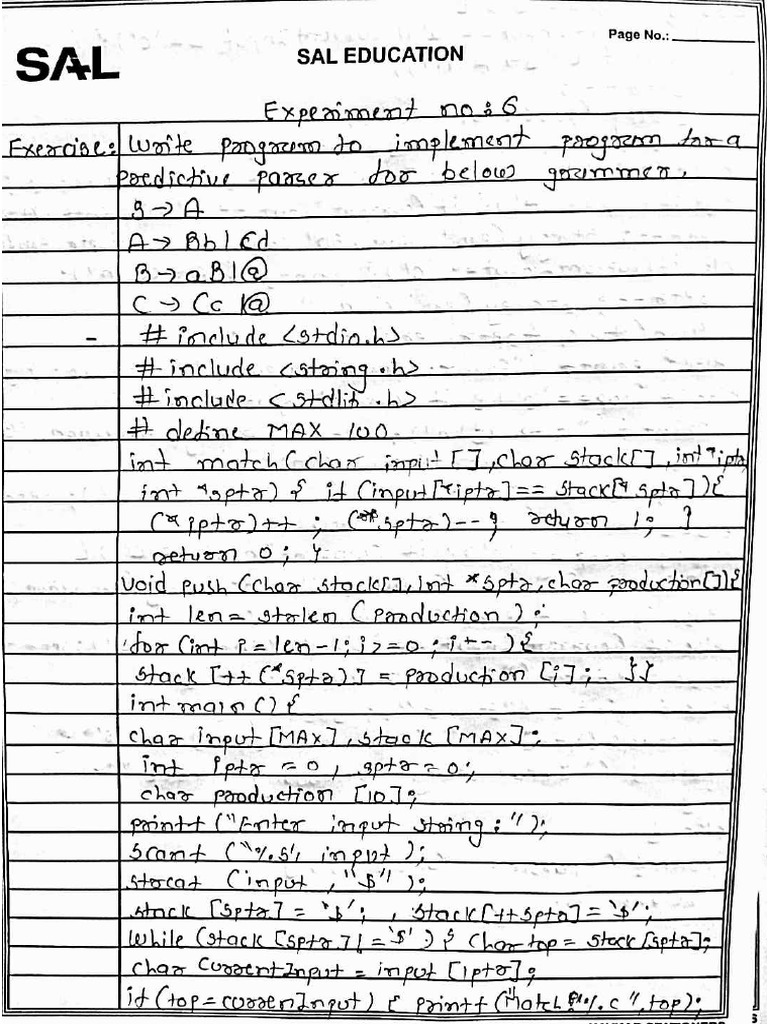 Page No.:
SAL
SAL EDUCATION
Experiment no: 6
Exercise: Write program to implement program for a
predictive parser for below grammer.
S → A
A → Bb | Cd
B → aB | @
C → Cc | @
- # include <stdio.h>
# include <string.h>
# include <stdlib.h>
# define MAX 100
int match (char input [], char stack[], int *iptr,
int *sptr) { if (input[*iptr] == stack[* sptr]) {
(*iptr)++ ; (*sptr)-- ; return 1; }
return 0; }
void push (char stack[], int *sptr, char production[]) {
int len = strlen (production) ;
for (int i = len-1; i >= 0 ; i--) {
stack [++ (*sptr)] = production [i]; }}
int main () {
char input [MAX], stack [MAX] ;
int iptr = 0, sptr = 0;
char production [10];
printf ("Enter input string: ");
scanf ("%s", input );
strcat (input , "$" );
stack [sptr] = '$'; , stack[++sptr] = '$';
while (stack [sptr] != '$' ) { char top = stack [sptr];
char currentInput = input [iptr];
if (top = currenInput) { printf ("Match %c ", top);